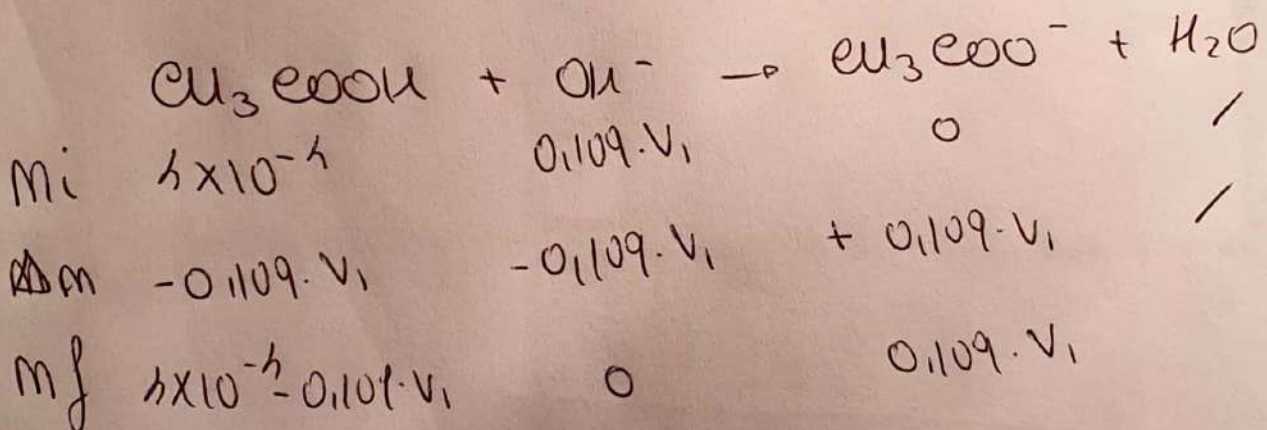 CH₃COOH + OH⁻ → CH₃COO⁻ + H₂O
ni 4×10⁻⁴ 0,109·V₁ 0 /
Δn -0,109·V₁ -0,109·V₁ + 0,109·V₁ /
nf 4×10⁻⁴-0,109·V₁ 0 0,109·V₁